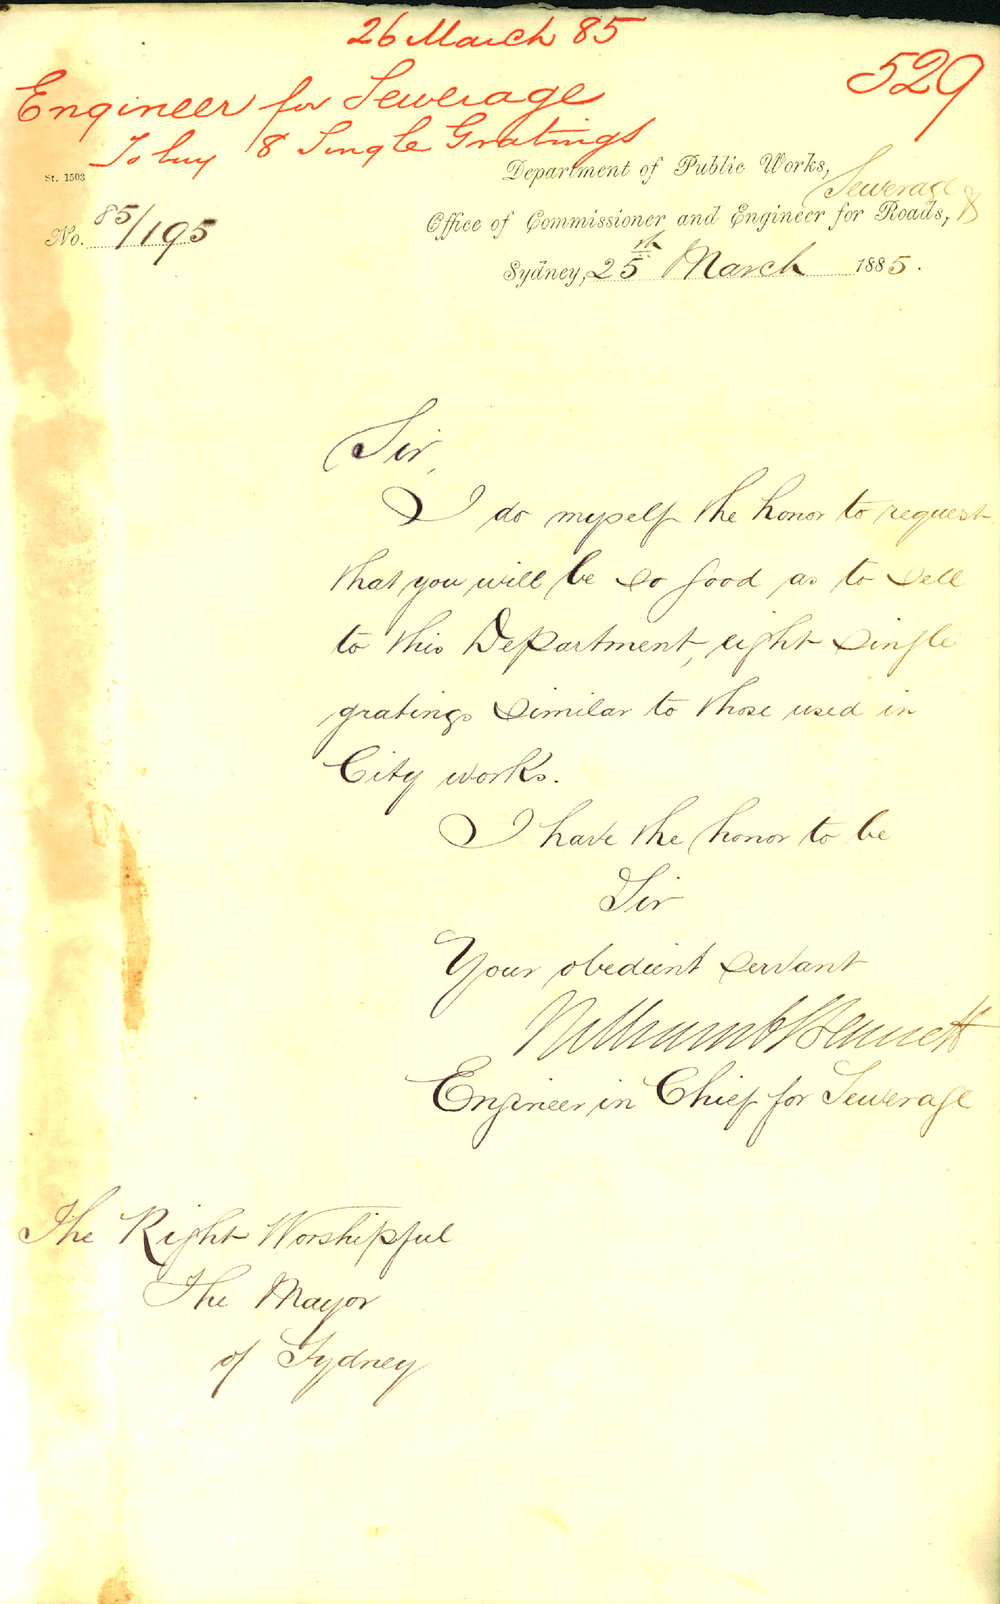 26 March 85
529
Engineer for Sewerage
To buy 8 Single Gratings
St. 1503
Department of Public Works,
Sewerage &
Office of Commissioner and Engineer for Roads,
No. 85/195
Sydney, 25th March 1885.
Sir,
I do myself the honor to request
that you will be so good as to sell
to this Department, eight single
gratings similar to those used in
City works.
I have the honor to be
Sir
Your obedient servant
Bennett
Engineer in Chief for Sewerage
The Right Worshipful
The Mayor
of Sydney